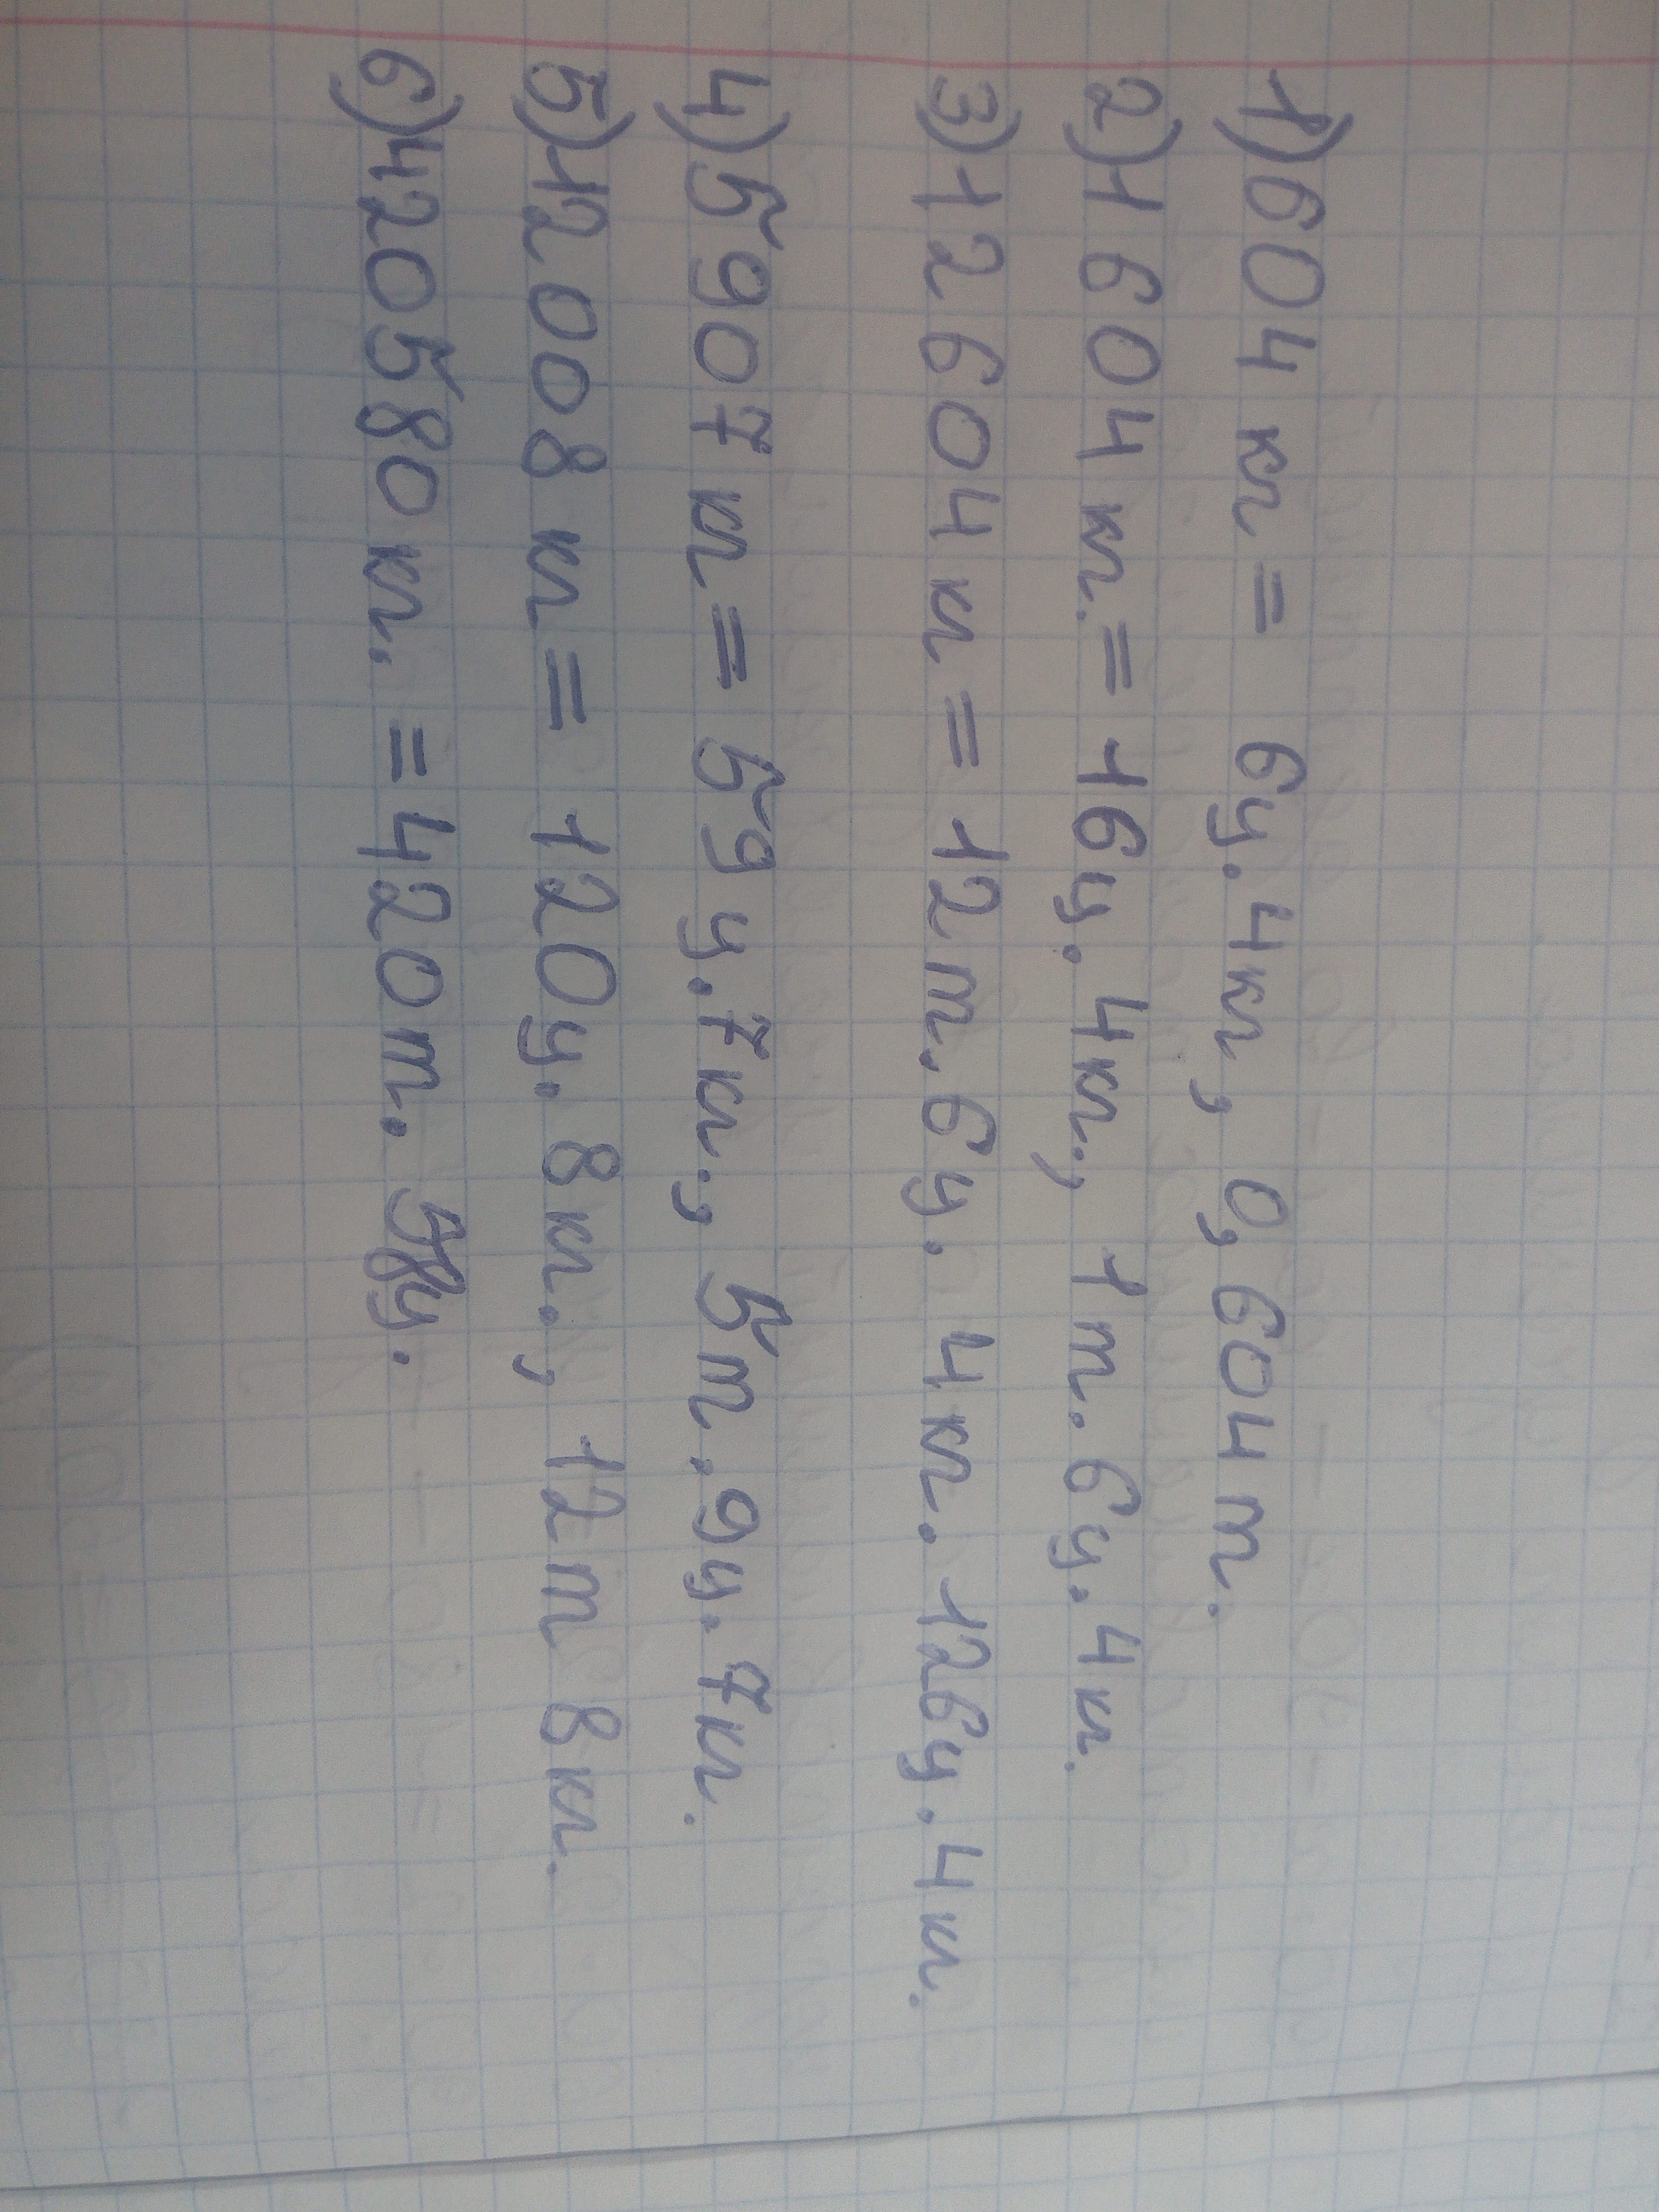 1) 604 кг = 6ц. 4кг, 0,604 т.
2) 1604 кг. = 16ц. 4кг., 1т. 6ц. 4кг.
3) 12604 кг = 12т. 6ц. 4кг. 126ц. 4кг.
4) 5907 кг = 59ц. 7кг., 5т. 9ц. 7кг.
5) 12008 кг = 120ц. 8кг., 12т 8кг.
6) 420580 кг. = 420т. ц.